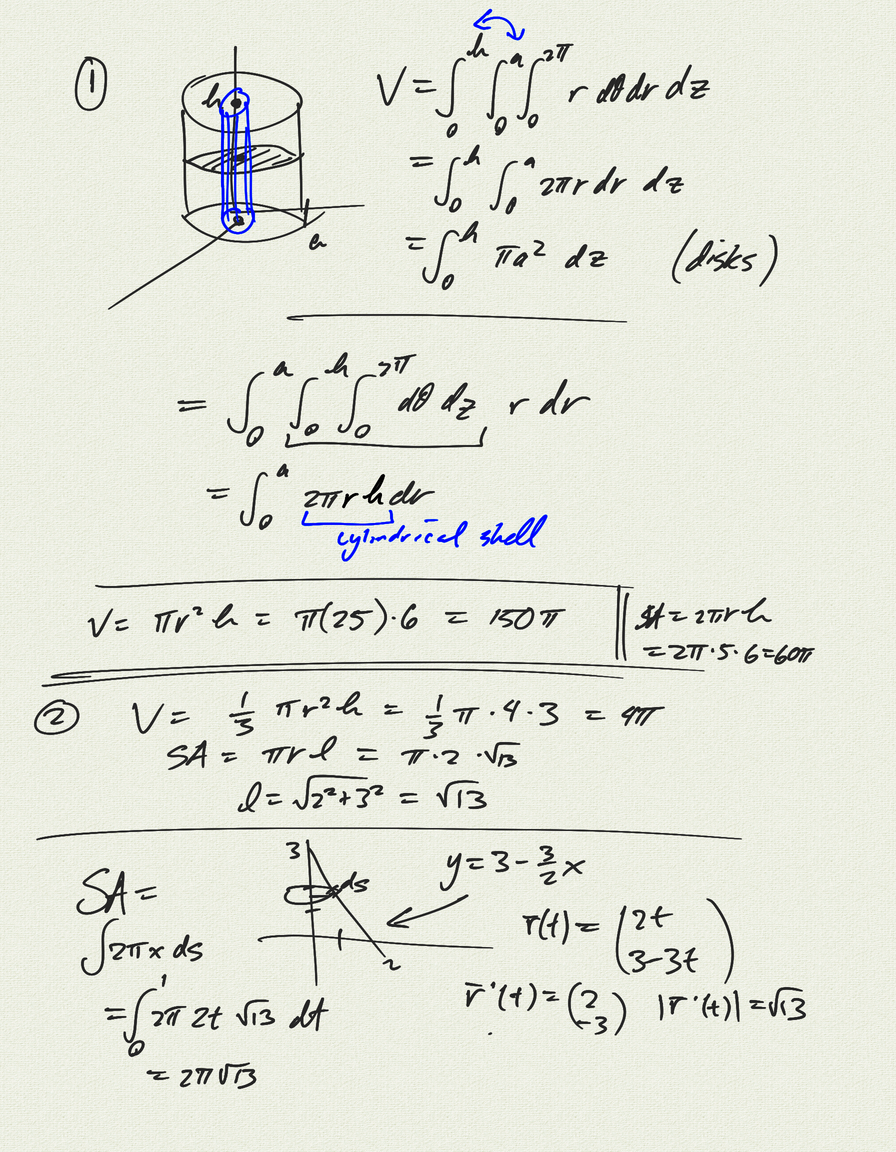 ①
h
a
V = ∫₀ʰ ∫₀ᵃ ∫₀^{2π} r dθ dr dz
= ∫₀ʰ ∫₀ᵃ 2πr dr dz
= ∫₀ʰ πa² dz (disks)
= ∫₀ᵃ ∫₀ʰ ∫₀^{2π} dθ dz r dr
= ∫₀ᵃ 2πr h dr
cylindrical shell
V = πr²h = π(25)·6 = 150π
SA = 2πrh
= 2π·5·6 = 60π
② V = 1/3 πr²h = 1/3 π·4·3 = 4π
SA = πrl = π·2·√13
l = √(2²+3²) = √13
SA =
∫2πx ds
= ∫₀¹ 2π 2t √13 dt
= 2π√13
3
ds
2
y = 3 - 3/2 x
r̄(t) = (2t
3-3t)
r̄'(t) = (2
-3) |r̄'(t)| = √13